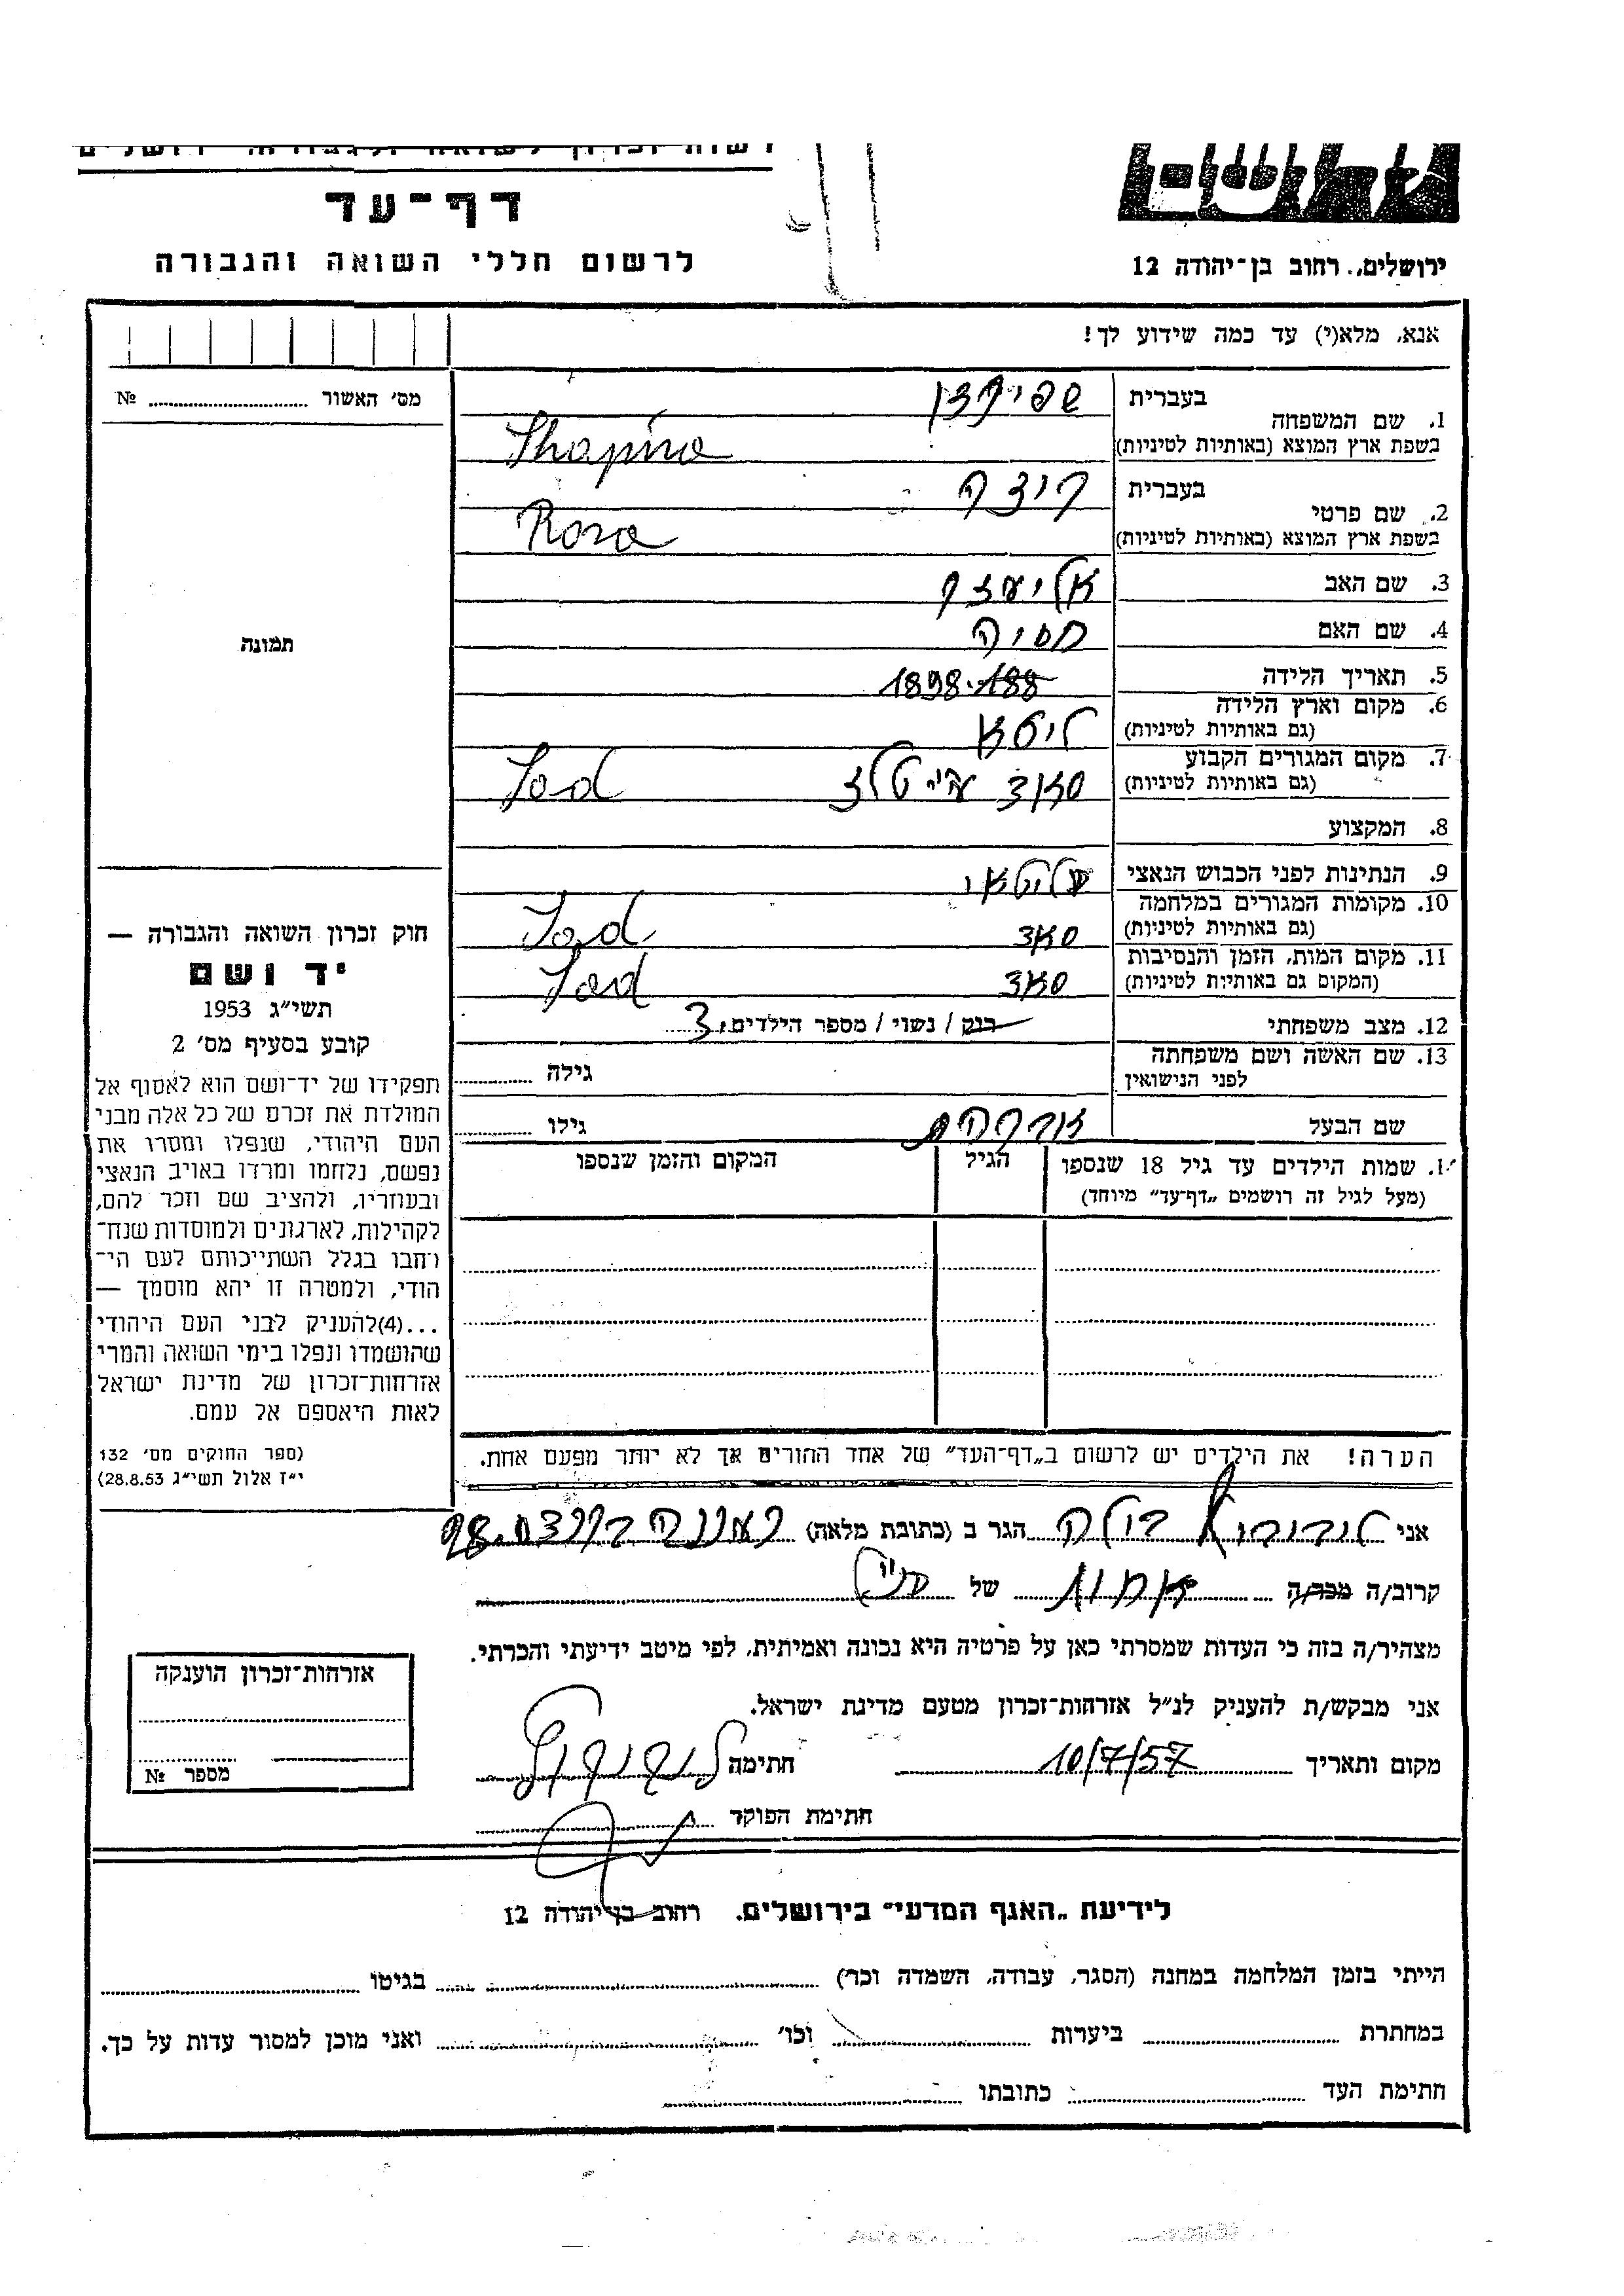 דף-עד
לרשום חללי השואה והגבורה
ירושלים, רחוב בן-יהודה 12
אנא, מלא(י) עד כמה שידוע לך!
מס׳ האשור № 
1. שם המשפחה
בעברית
בשפת ארץ המוצא (באותיות לטיניות) Shapira
2. שם פרטי
בעברית
בשפת ארץ המוצא (באותיות לטיניות) Rosa
3. שם האב אליעזר
4. שם האם חסיה
5. תאריך הלידה 1898
6. מקום וארץ הלידה ליטא
(גם באותיות לטיניות)
7. מקום המגורים הקבוע
(גם באותיות לטיניות)
8. המקצוע
9. הנתינות לפני הכבוש הנאצי
10. מקומות המגורים במלחמה
(גם באותיות לטיניות)
11. מקום המות, הזמן והנסיבות
(המקום גם באותיות לטיניות)
12. מצב משפחתי רוק / נשוי / מספר הילדים 3
13. שם האשה ושם משפחתה
לפני הנישואין גילה
שם הבעל אברהם גילו
שמות הילדים עד גיל 18 שנספו הגיל המקום והזמן שנספו
(מעל לגיל זה רושמים „דף-עד״ מיוחד)
הערה! את הילדים יש לרשום ב„דף-העד״ של אחד ההורים אך לא יותר מפעם אחת.
תמונה
חוק זכרון השואה והגבורה —
יד ושם
תשי״ג 1953
קובע בסעיף מס׳ 2
תפקידו של יד-ושם הוא לאסוף אל
המולדת את זכרם של כל אלה מבני
העם היהודי, שנפלו ומסרו את
נפשם, נלחמו ומרדו באויב הנאצי
ובעוזריו, ולהציב שם וזכר להם,
לקהילות, לארגונים ולמוסדות שנח־
רתבו בגלל השתייכותם לעם הי־
הודי, ולמטרה זו יהא מוסמך —
...(4)להעניק לבני העם היהודי
שהושמדו ונפלו בימי השואה והמרי
אזרחות-זכרון של מדינת ישראל
לאות היאספם אל עמם.
(ספר החוקים מס׳ 132
י״ז אלול תשי״ג 28.8.53)
אני הגר ב (כתובת מלאה)
קרוב/ה מכר/ה של
מצהיר/ה בזה כי העדות שמסרתי כאן על פרטיה היא נכונה ואמיתית, לפי מיטב ידיעתי והכרתי.
אני מבקש/ת להעניק לנ״ל אזרחות-זכרון מטעם מדינת ישראל.
מקום ותאריך 10/7/57 חתימה
חתימת הפוקד
אזרחות-זכרון הוענקה
מספר №
לידיעת „האגף המדעי״ בירושלים. רחוב בן-יהודה 12
הייתי בזמן המלחמה במחנה (הסגר, עבודה, השמדה וכד׳) בגיטו
במחתרת ביערות וכו׳ ואני מוכן למסור עדות על כך.
חתימת העד כתובתו